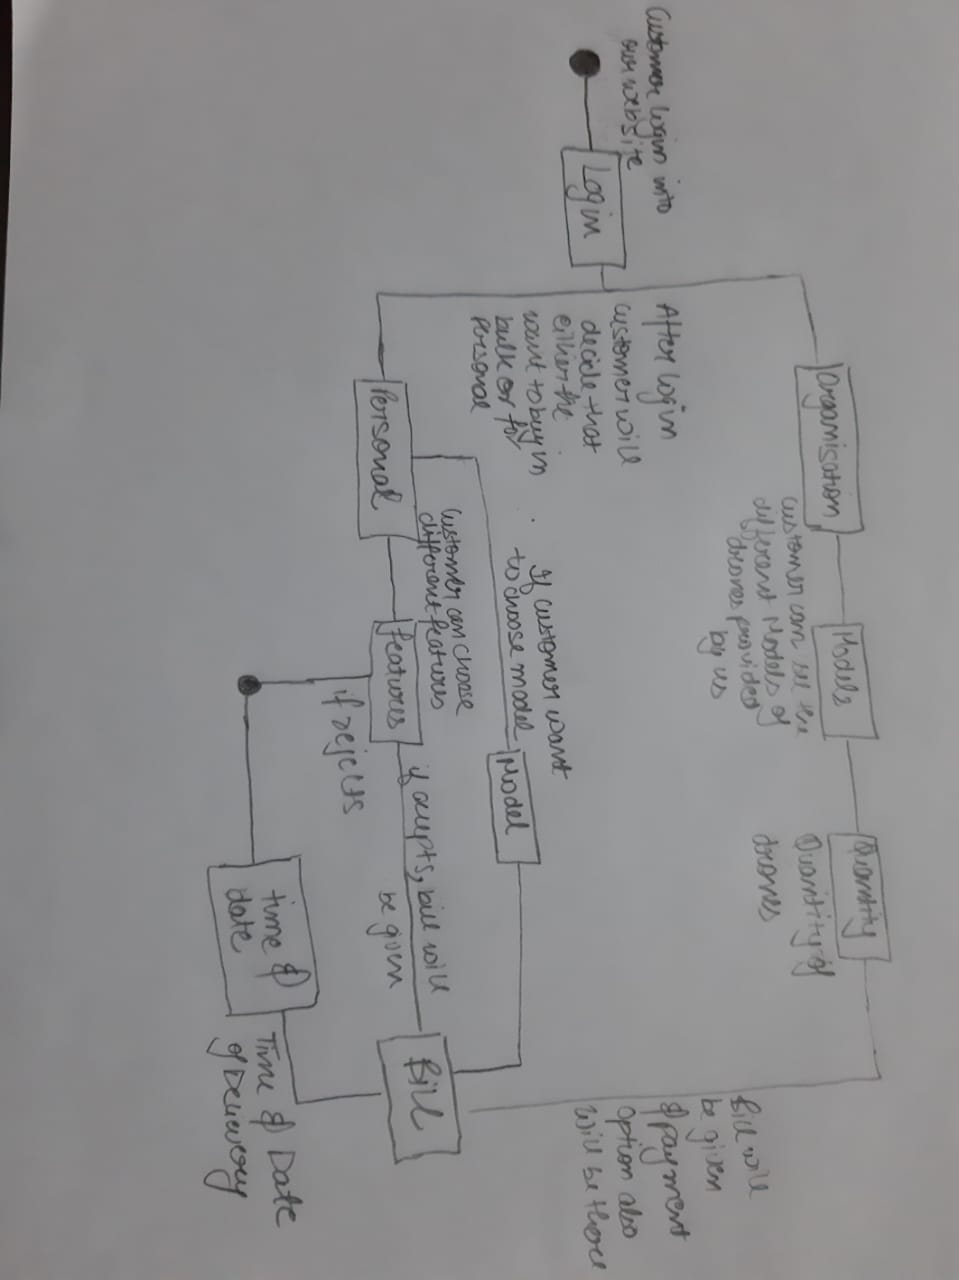 Customer login into
our website
Login
After login
customer will
decide that
either the
want to buy in
bulk or for
personal
Organisation
Customer can see the
different Models of
drones provided
by us
Models
Quantity
Quantity of
drones
Bill will
be given
& payment
option also
will be there
Personal
Customer can choose
different features
If customer want
to choose model
Model
features
if rejects
if accepts, bill will
be given
Bill
time &
date
Time & Date
of Delievery